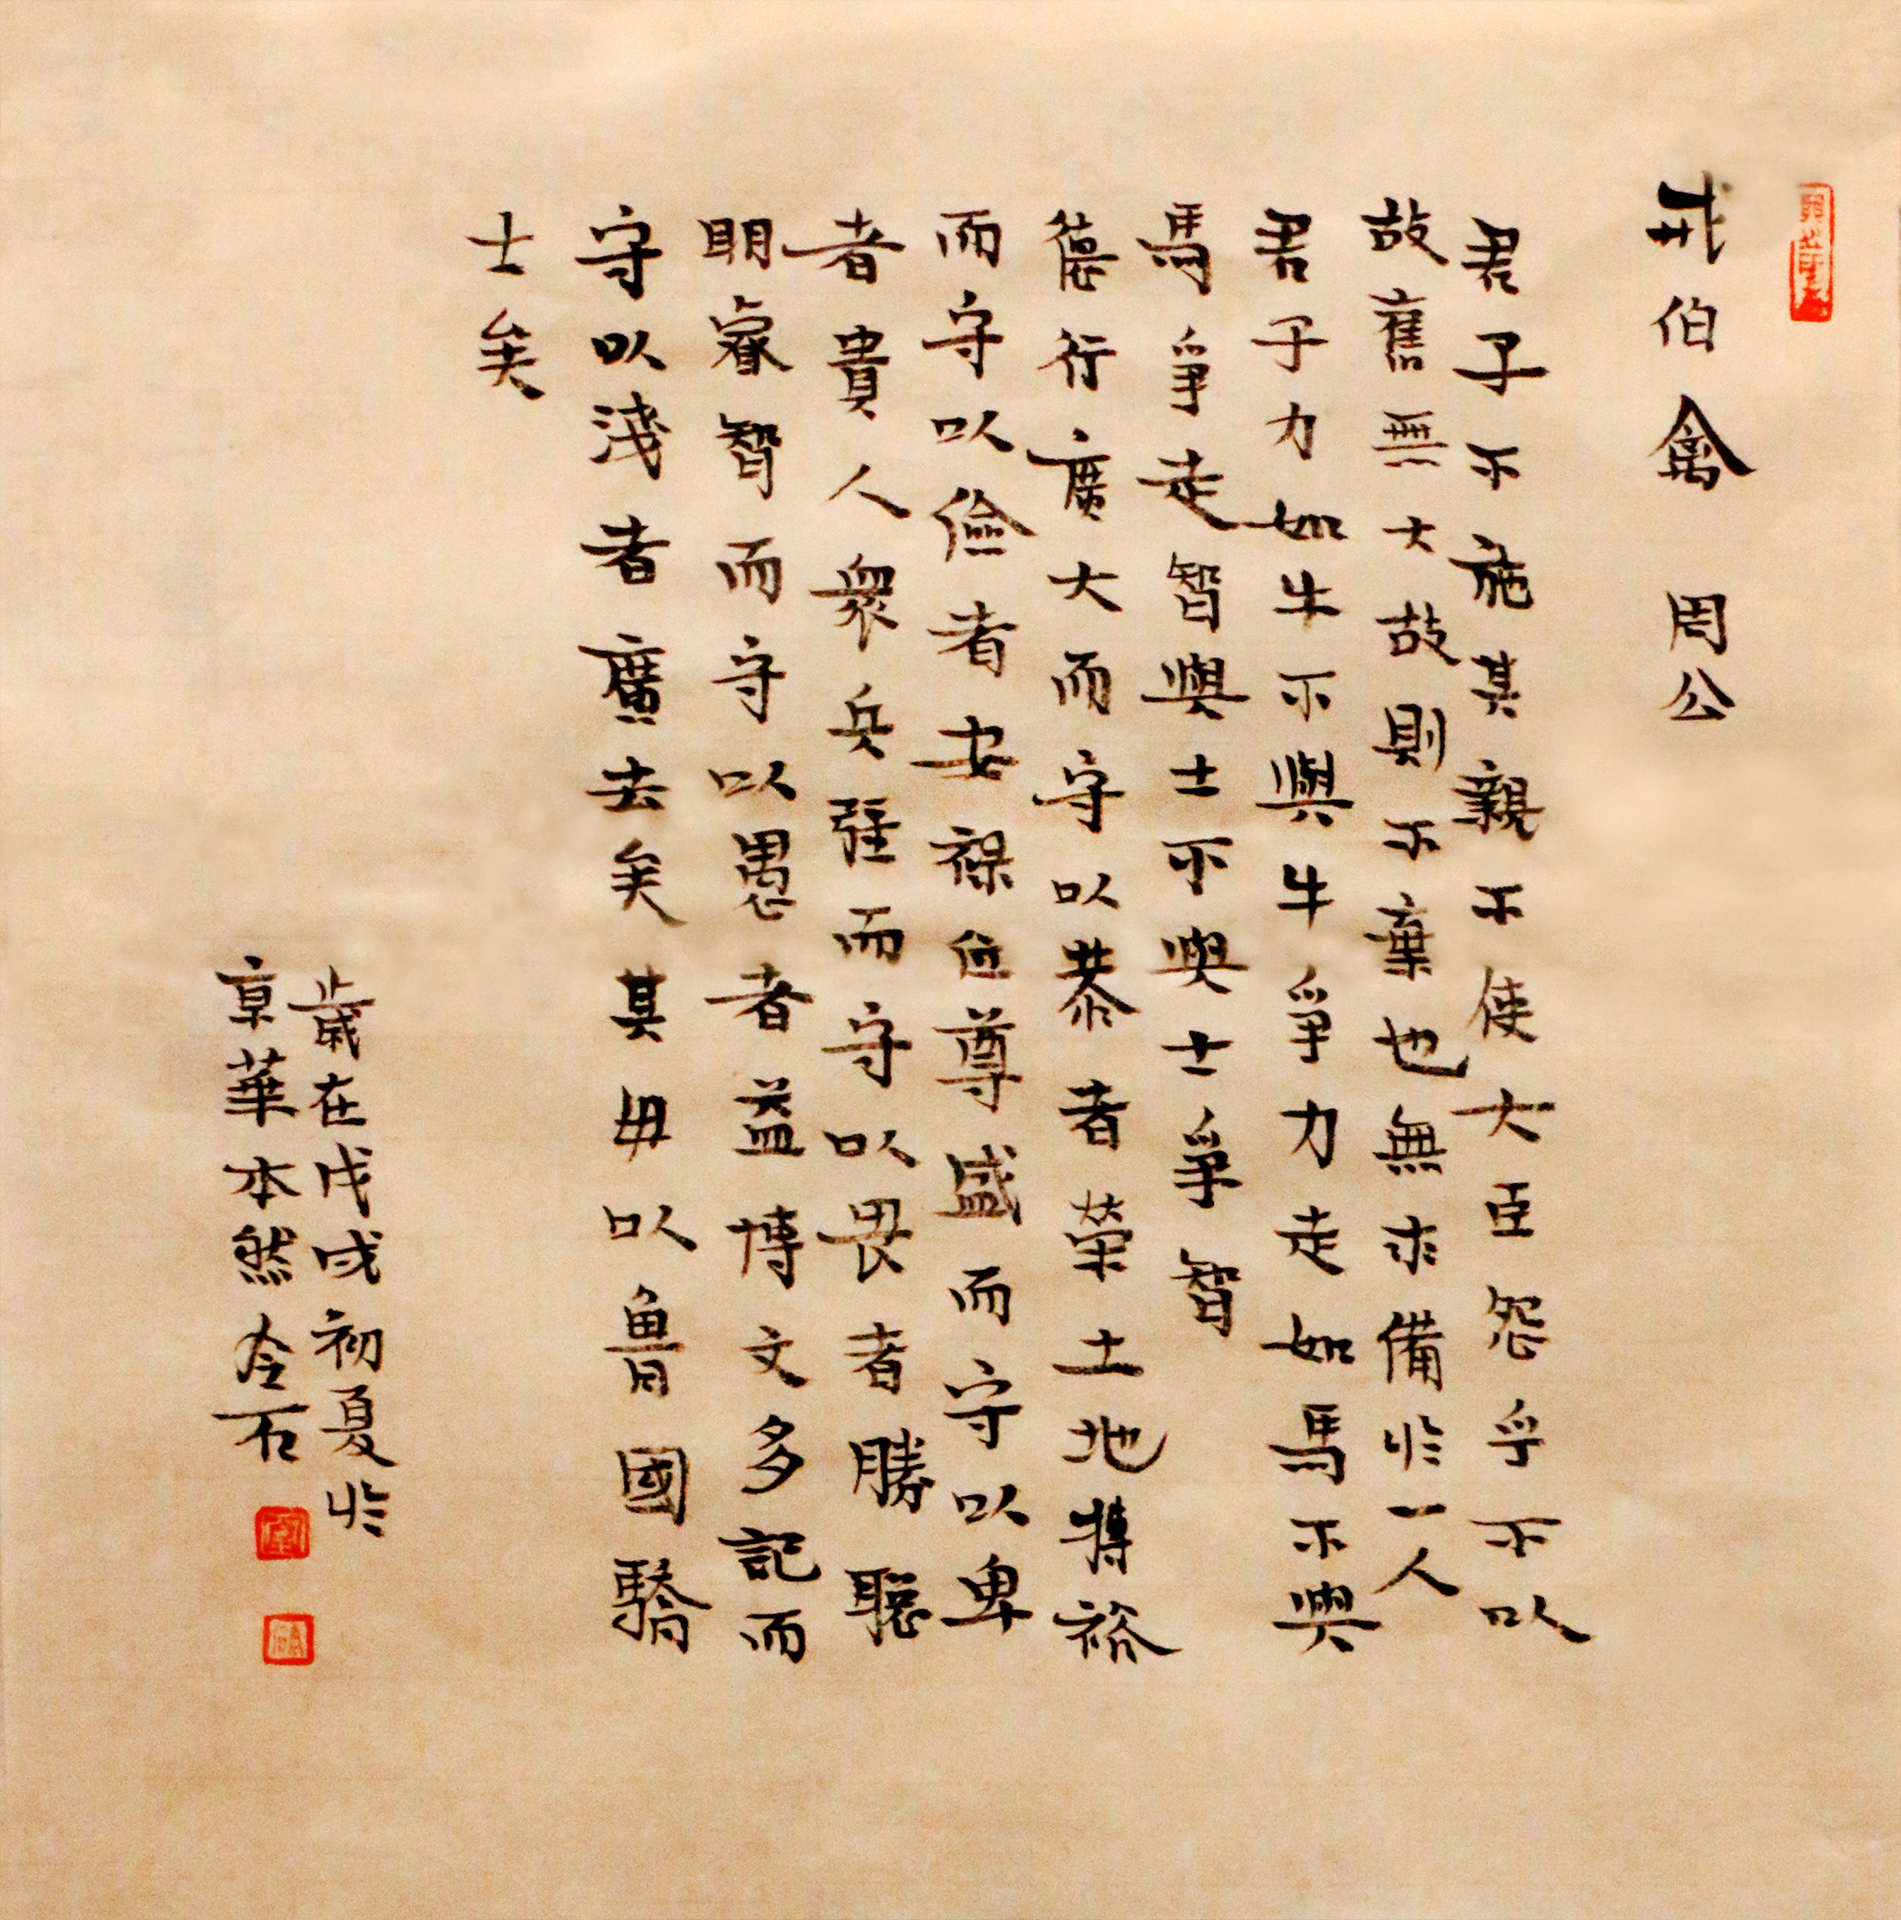 戒伯禽 周公
君子不施其親不使大臣怨乎不以
故舊無大故則不棄也無求備於一人
君子力如牛不與牛爭力走如馬不與
馬爭走智與士不與士爭智
德行廣大而守以恭者榮土地博裕
而守以儉者安祿位尊盛而守以卑
者貴人眾兵强而守以畏者勝聰
明睿智而守以愚者益博文多記而
守以淺者廣去矣其毋以魯國驕
士矣
歲在戊戌初夏於
京華本然冷石